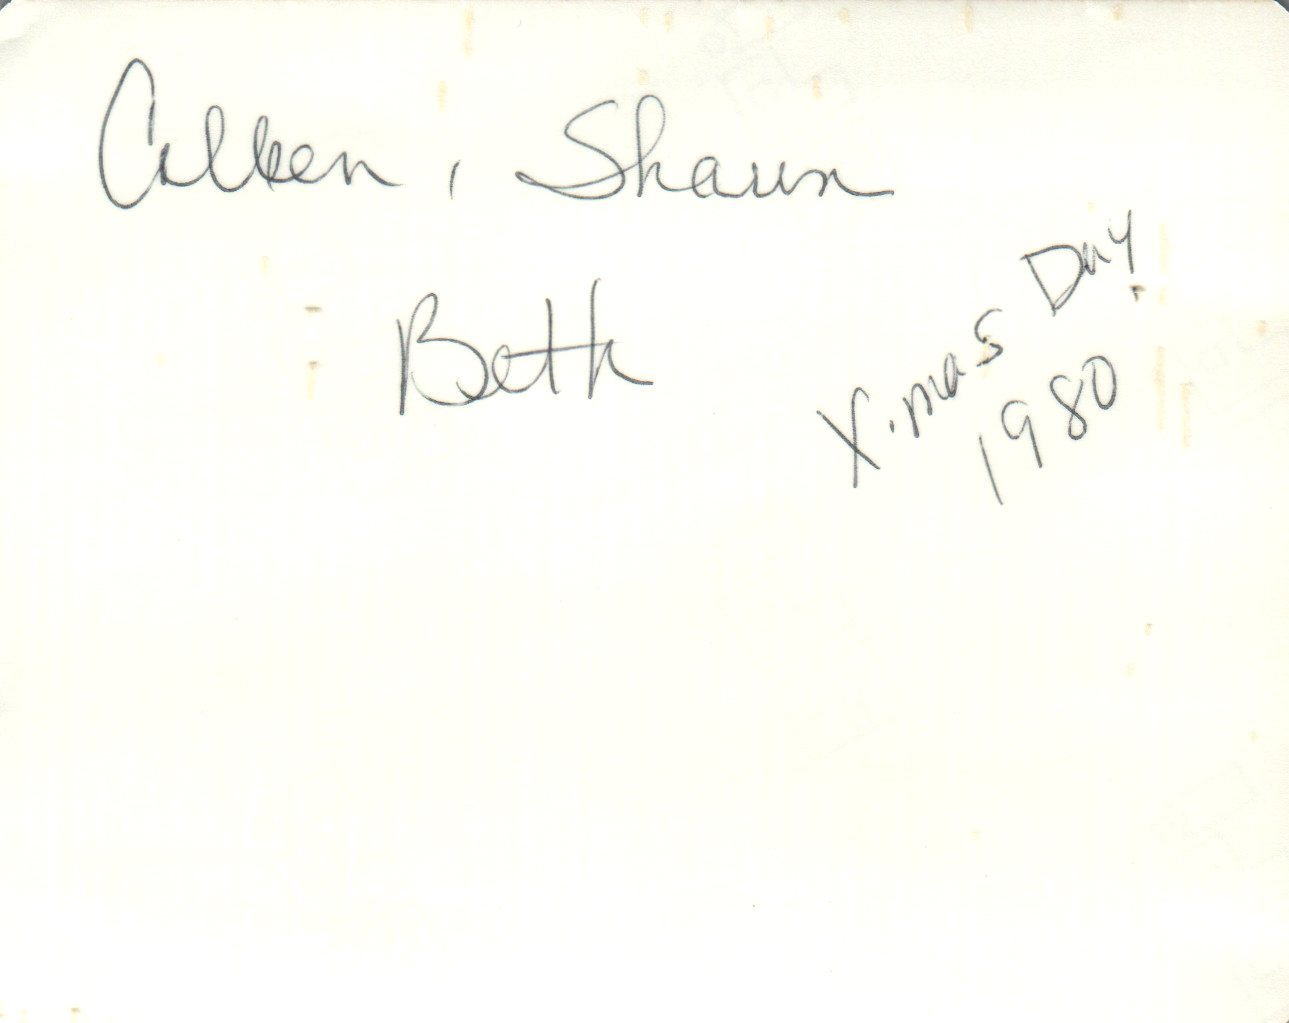 Colleen, Shawn
Beth
X.mas Day
1980